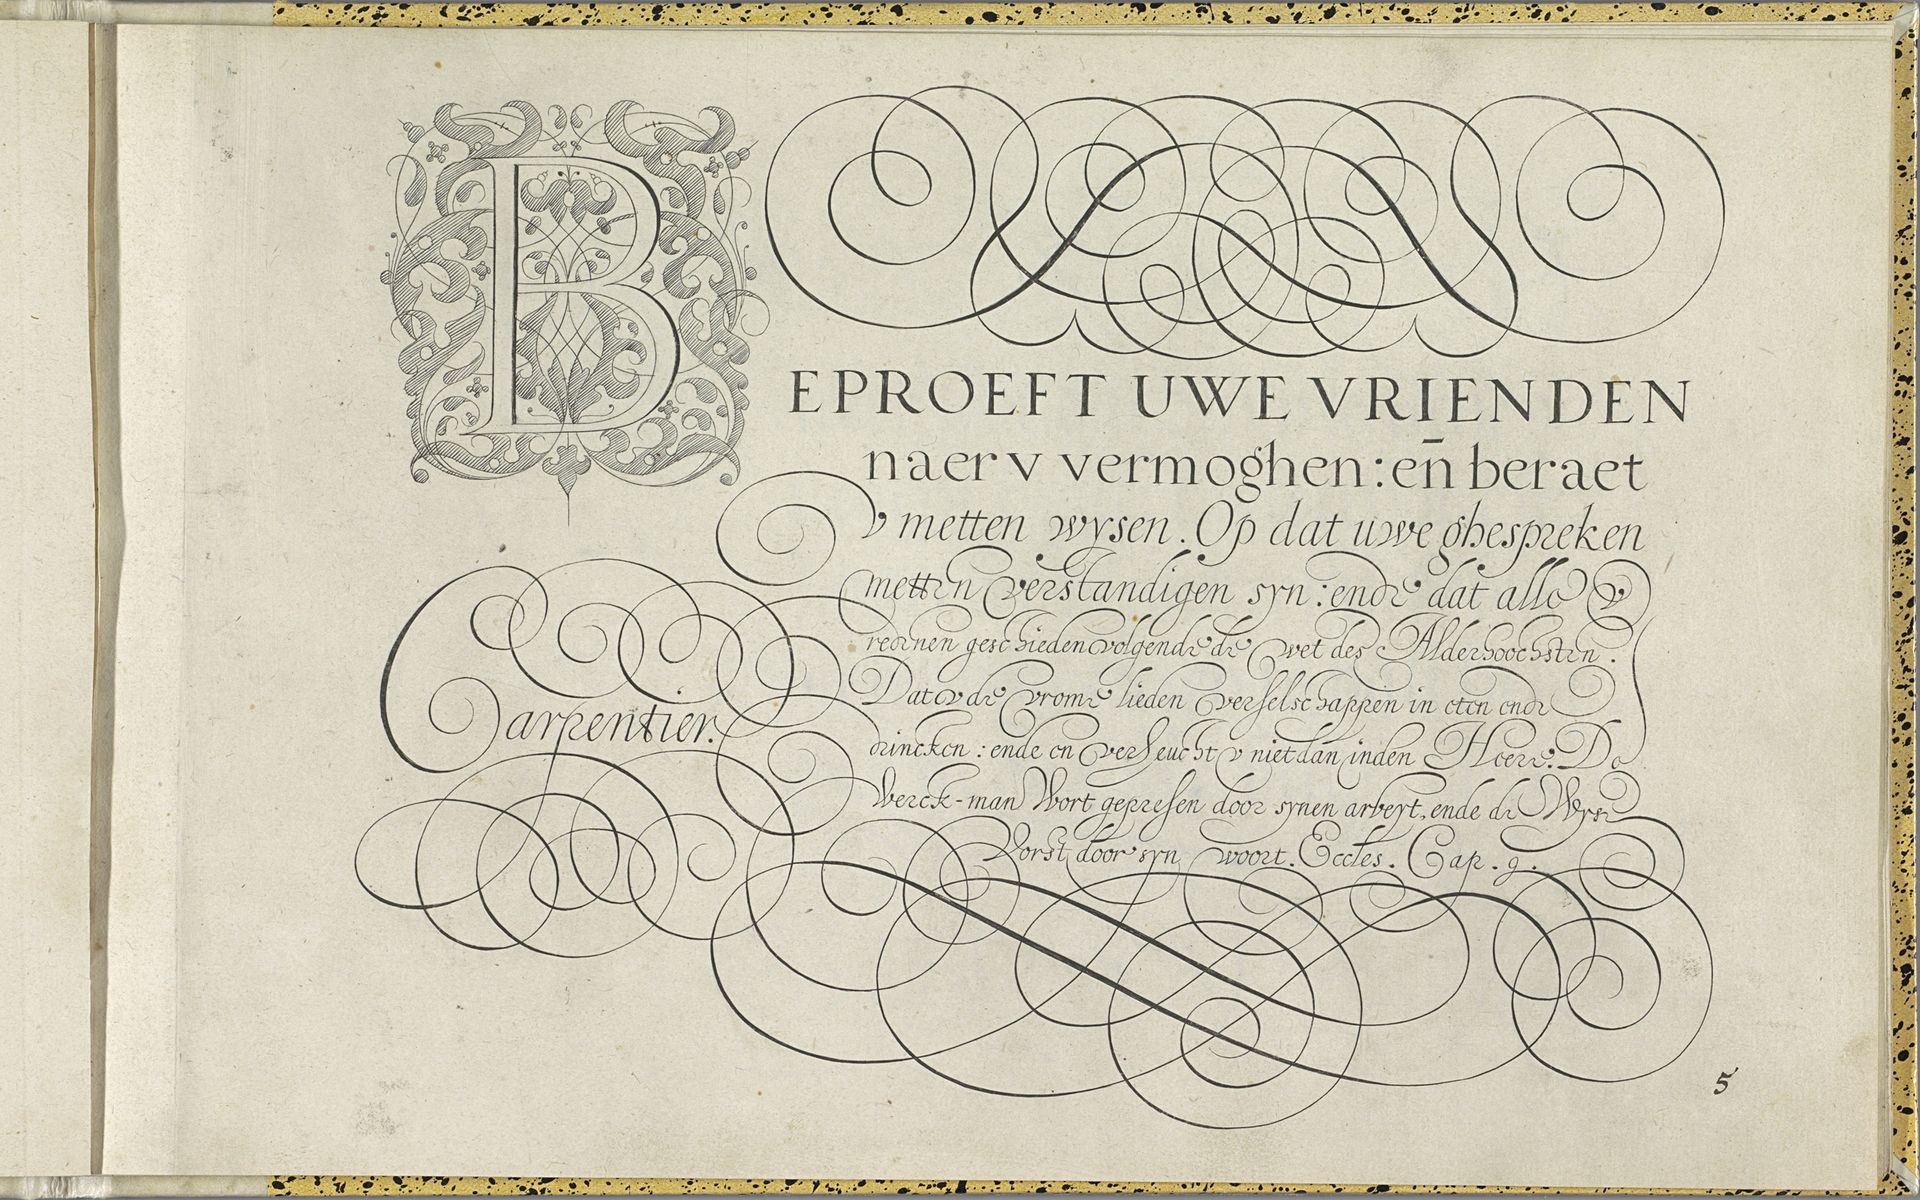 BEPROEFT UWE VRIENDEN
naer v vermoghen: en̄ beraet
v metten wysen. Op dat uwe ghespreken
metten verstandigen syn: ende dat alle v
redenen geschieden volgende de wet des Alderhoochsten.
Dat v de vrome lieden verselschappen in eten ende
drincken: ende en verheucht v niet dan inden Heere. De
Werck-man Wort gepresen door synen arbeyt, ende de Wyse
Vorst door syn woort. Eccles. Cap. 9.
Carpentier.
5